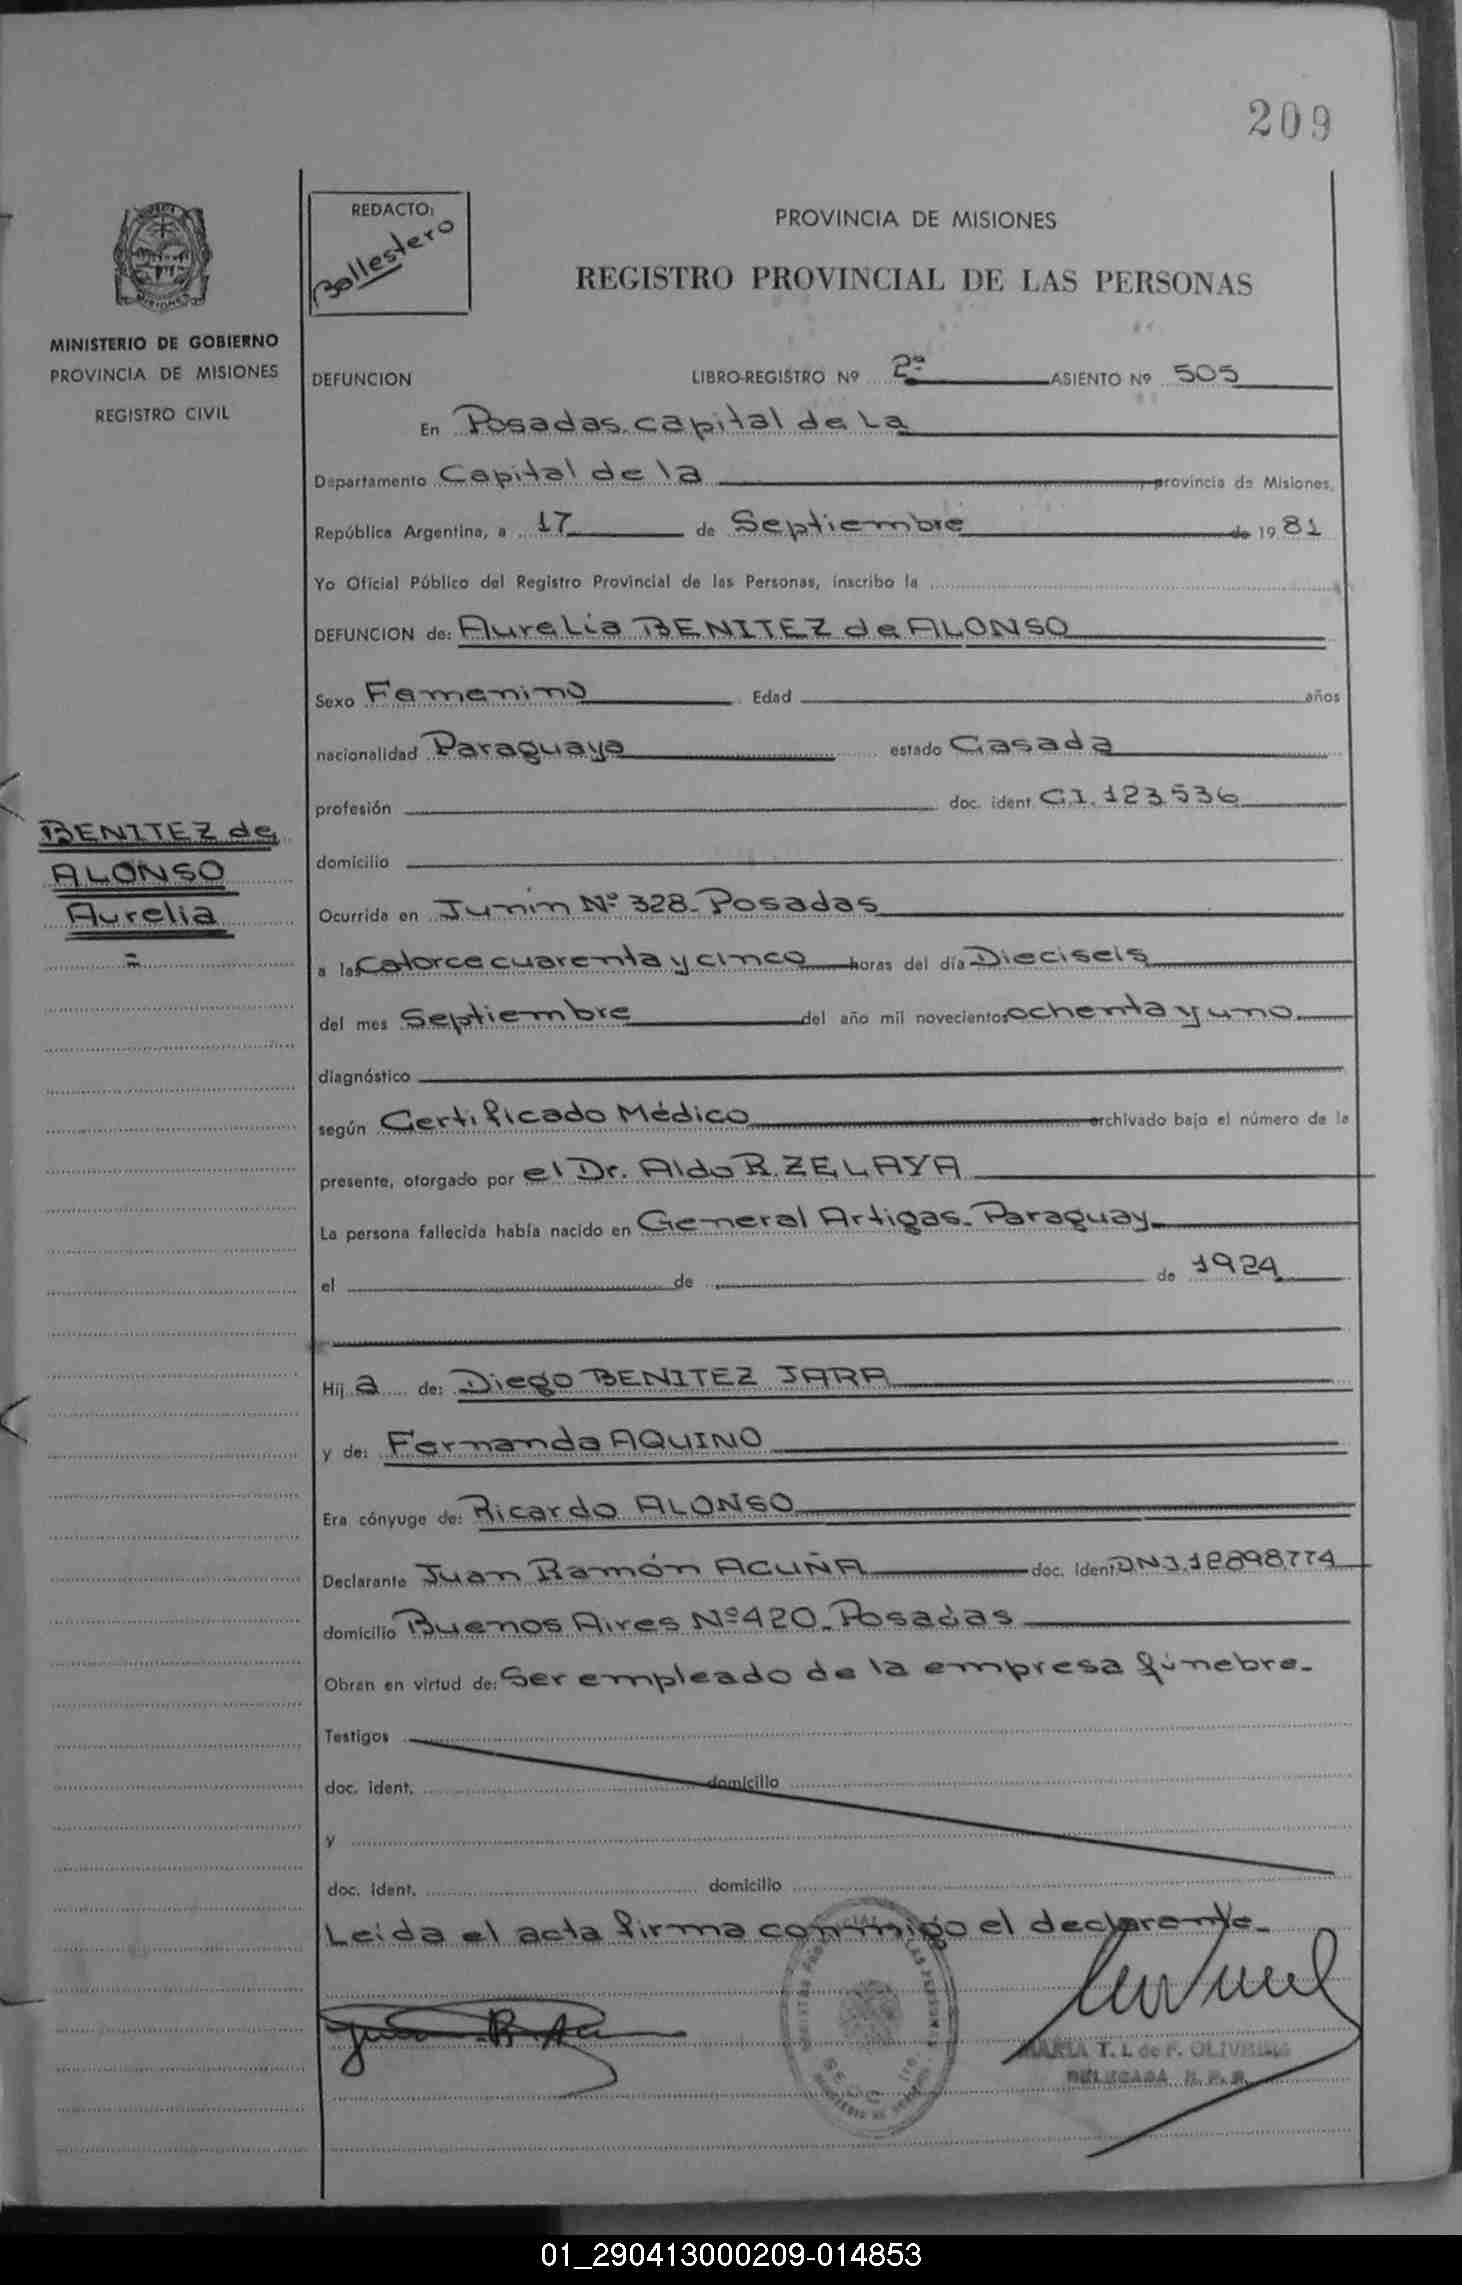 209
REDACTO:
Ballestero
PROVINCIA DE MISIONES
REGISTRO PROVINCIAL DE LAS PERSONAS
MINISTERIO DE GOBIERNO
PROVINCIA DE MISIONES
REGISTRO CIVIL
DEFUNCION LIBRO-REGISTRO Nº 2º ASIENTO Nº 505
En Posadas, capital de La
Departamento Capital de la provincia de Misiones,
República Argentina, a 17 de Septiembre de 1981
Yo Oficial Público del Registro Provincial de las Personas, inscribo la
DEFUNCION de: Aurelia BENITEZ de ALONSO
Sexo Femenino Edad años
nacionalidad Paraguaya estado Casada
profesión doc. ident. C.I. 123.536
BENITEZ de
ALONSO
Aurelia
=
domicilio
Ocurrida en Junin Nº 328-Posadas
a las Catorce cuarenta y cinco horas del día Dieciseis
del mes Septiembre del año mil novecientos ochenta y uno
diagnóstico
según Certificado Médico archivado bajo el número de la
presente, otorgado por el Dr. Aldo R. ZELAYA
La persona fallecida había nacido en General Artigas-Paraguay
el de de 1924
Hij a de: Diego BENITEZ JARA
y de: Fernanda AQUINO
Era cónyuge de: Ricardo ALONSO
Declarante Juan Ramón ACUÑA doc. ident. DNI. 12898.774
domicilio Buenos Aires Nº 420-Posadas
Obran en virtud de: Ser empleado de la empresa fúnebre-
Testigos
doc. ident. domicilio
y
doc. ident. domicilio
Leida el acta firma conmigo el declarante-
MARIA T. I. de F. OLIVEIRA
DELEGADA R. P. P.
01_290413000209-014853